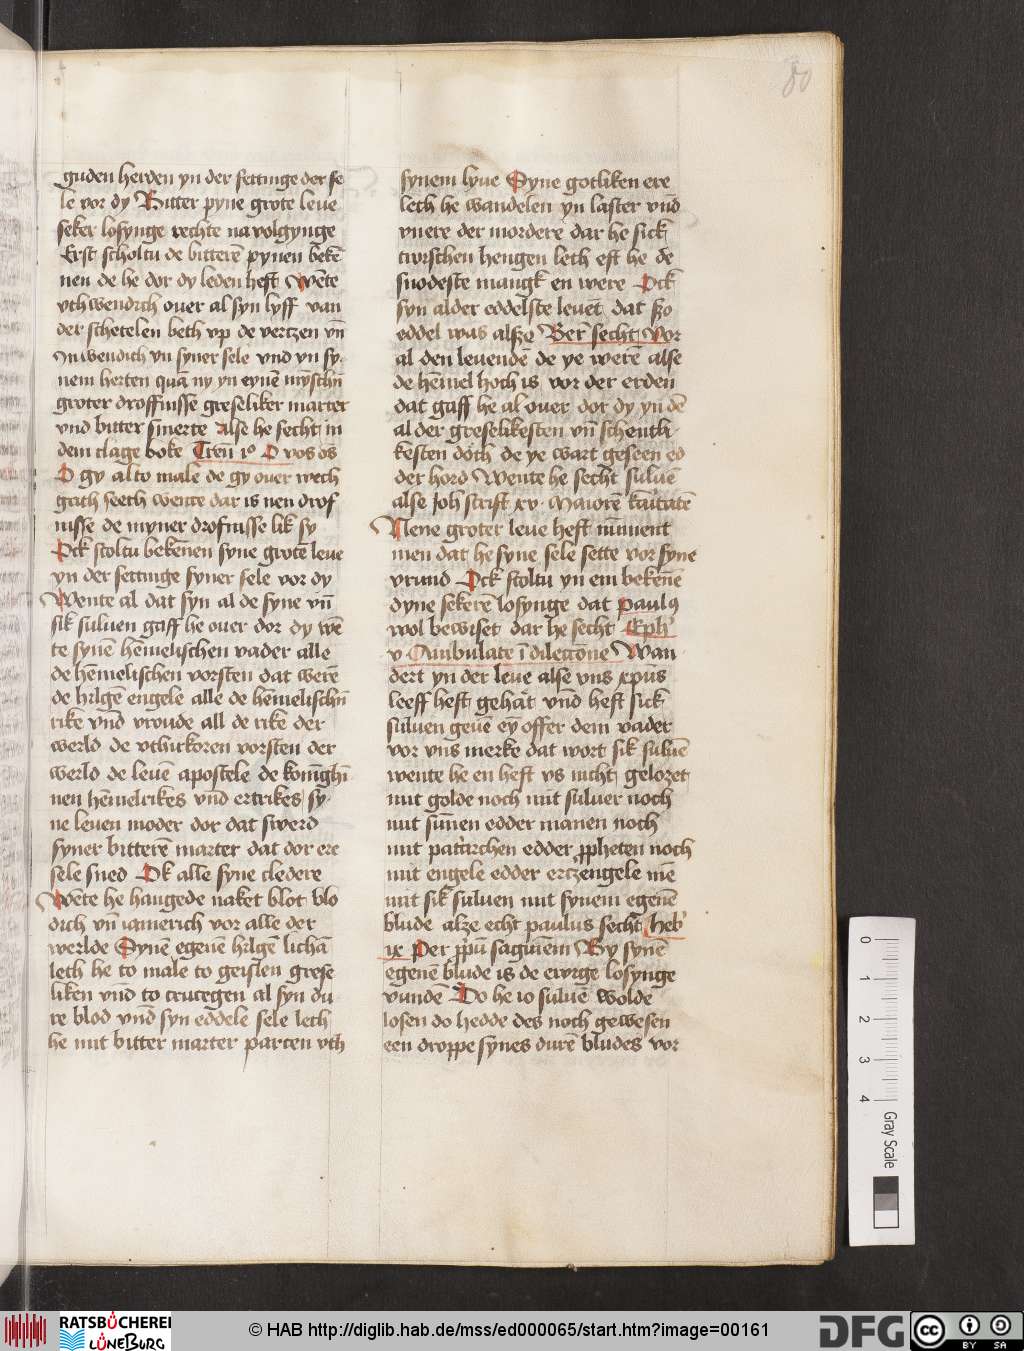 80
guden herden yn der settinge der se
le vor dy Bitter pyne grote leue
seker losynge rechte na volgynge
Erst scholtu de bitterē pynen bekē
nen de he dor dy leden heft Wēte
vthwendich ouer al syn lyff van
der schetelen beth vp de vertzen vn̄
Inwendich yn syner sele vnd yn sy
nem herten quā ny yn eynē mȳschn̄
groter droffnisse greseliker marter
vnd bitter smerte alse he secht in
dem clage boke Tren̄ 1º O vos oēs
O gy al to male de gy ouer wech
gath seeth wente dar is nen drof
nisse de myner drofnisse lik sy
Ock scoltu bekēnen syne grotē leue
yn der settinge syner sele vor dy
Wente al dat syn al de syne vn̄
sik suluen gaff he ouer dor dy wē
te synē hēmelischen vader alle
de hēmelischen vorsten dat werē
de hilgē engele alle de hēmelischn̄
rike vnd vroude all de rike der
werld de vthirkoren vorsten der
werld de leuē apostele de konīghi
nen hēmelrikes vnd ertrikes sy
ne leuen moder dor dat swerd
syner bitterē marter dat dor ere
sele sned Ok alle syne cledere
Wēte he hangede naket blot blo
dich vn̄ iamerich vor alle der
werlde Synē egenē hilgē lichā
leth he to male to geislen grese
liken vnd to crucegen al syn du
re blod vnd syn eddele sele leth
he mit bitter marter parten vth
synem lyue Syne gotliken ere
leth he wandelen yn laster vnd
vnere der mordere dar he sick
twischen hengen leth eft he de
snodeste mangk en were Ock
syn alder eddelste leuēt dat szo
eddel was alsze Ber̄ secht vor
al den leuendē de ye werē alse
de hēmel hoch is vor der erden
dat gaff he al ouer dor dy yn dē
al der greselikesten vn̄ scheuth
kesten doth de ye wart geseen ed
der hord Wente he secht suluē
alse Joh̄ scrift xv Maiorē karitatē
Nene groter leue heft nūment
men dat he syne sele sette vor syne
vrund Ock scoltu yn em bekēnē
dyne sekerē losynge dat paulꝰ
wol bewiset dar he secht Eph'
v Ambulate ī dilectōne Wan
dert yn der leue alse vns xp̄us
leeff heft gehat vnd heft sick
suluen geuē ey offer dem vader
vor vns merke dat wort sik suluē
wente he en heft vs nicht geloset
mit golde noch mit suluer noch
mit sūnen edder manen noch
mit patriarchen edder ꝓpheten noch
mit engele edder ertzengele mē
mit sik suluen mit synem egenē
blude alze echt paulus secht heb'
ix Per ꝓp̄ū saguīem By synē
egenē blude is de ewige losynge
vundē Do he io suluē wolde
losen do hedde des noch gewesen
een droppe synes durē bludes vor
0 1 2 3 4
Gray Scale
RATSBÜCHEREI LÜNEBURG
© HAB http://diglib.hab.de/mss/ed000065/start.htm?image=00161
DFG
cc BY SA